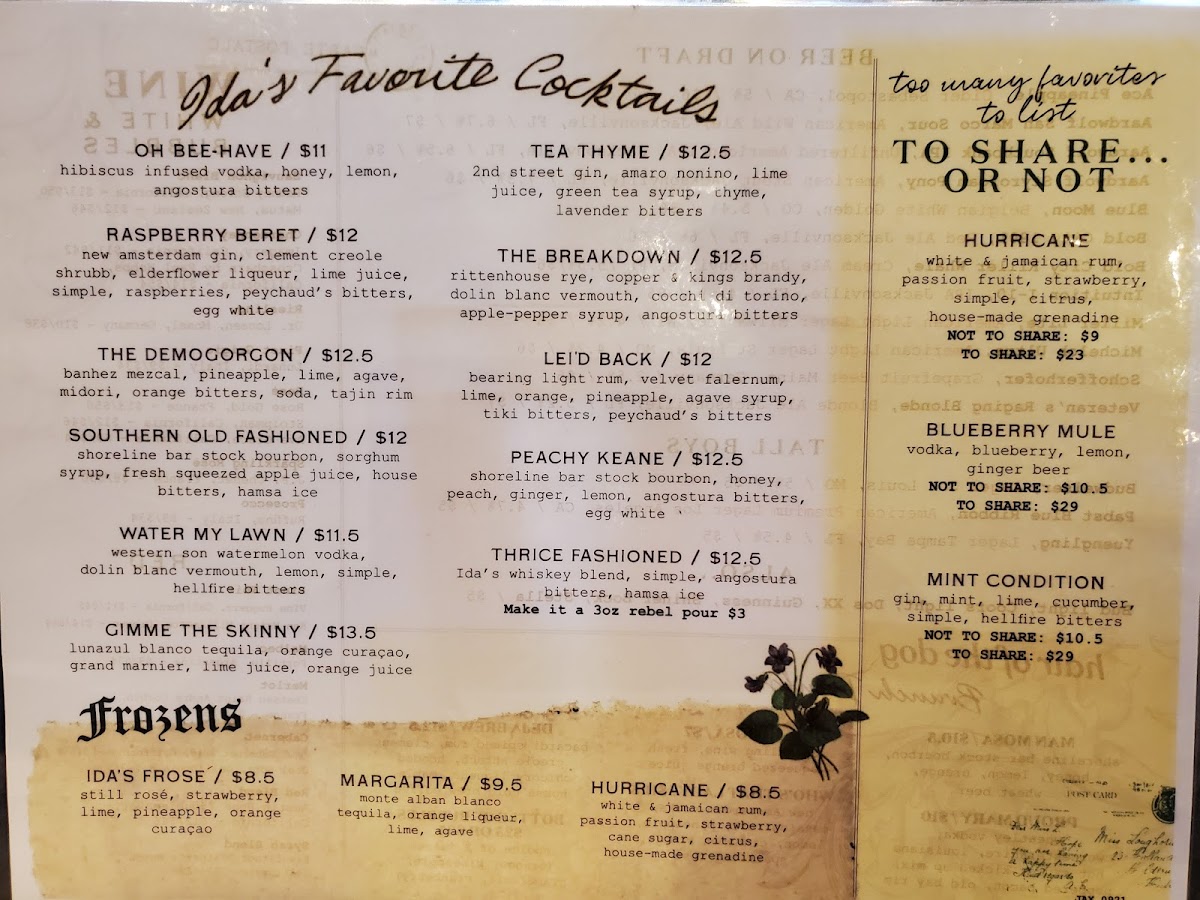 Ida's Favorite Cocktails
OH BEE-HAVE / $11
hibiscus infused vodka, honey, lemon,
angostura bitters
RASPBERRY BERET / $12
new amsterdam gin, clement creole
shrubb, elderflower liqueur, lime juice,
simple, raspberries, peychaud's bitters,
egg white
THE DEMOGORGON / $12.5
banhez mezcal, pineapple, lime, agave,
midori, orange bitters, soda, tajin rim
SOUTHERN OLD FASHIONED / $12
shoreline bar stock bourbon, sorghum
syrup, fresh squeezed apple juice, house
bitters, hamsa ice
WATER MY LAWN / $11.5
western son watermelon vodka,
dolin blanc vermouth, lemon, simple,
hellfire bitters
GIMME THE SKINNY / $13.5
lunazul blanco tequila, orange curaçao,
grand marnier, lime juice, orange juice
TEA THYME / $12.5
2nd street gin, amaro nonino, lime
juice, green tea syrup, thyme,
lavender bitters
THE BREAKDOWN / $12.5
rittenhouse rye, copper & kings brandy,
dolin blanc vermouth, cocchi di torino,
apple-pepper syrup, angostura bitters
LEI'D BACK / $12
bearing light rum, velvet falernum,
lime, orange, pineapple, agave syrup,
tiki bitters, peychaud's bitters
PEACHY KEANE / $12.5
shoreline bar stock bourbon, honey,
peach, ginger, lemon, angostura bitters,
egg white
THRICE FASHIONED / $12.5
Ida's whiskey blend, simple, angostura
bitters, hamsa ice
Make it a 3oz rebel pour $3
too many favorites
to list
TO SHARE...
OR NOT
HURRICANE
white & jamaican rum,
passion fruit, strawberry,
simple, citrus,
house-made grenadine
NOT TO SHARE: $9
TO SHARE: $23
BLUEBERRY MULE
vodka, blueberry, lemon,
ginger beer
NOT TO SHARE: $10.5
TO SHARE: $29
MINT CONDITION
gin, mint, lime, cucumber,
simple, hellfire bitters
NOT TO SHARE: $10.5
TO SHARE: $29
Frozens
IDA'S FROSÉ / $8.5
still rosé, strawberry,
lime, pineapple, orange
curaçao
MARGARITA / $9.5
monte alban blanco
tequila, orange liqueur,
lime, agave
HURRICANE / $8.5
white & jamaican rum,
passion fruit, strawberry,
cane sugar, citrus,
house-made grenadine
POST CARD